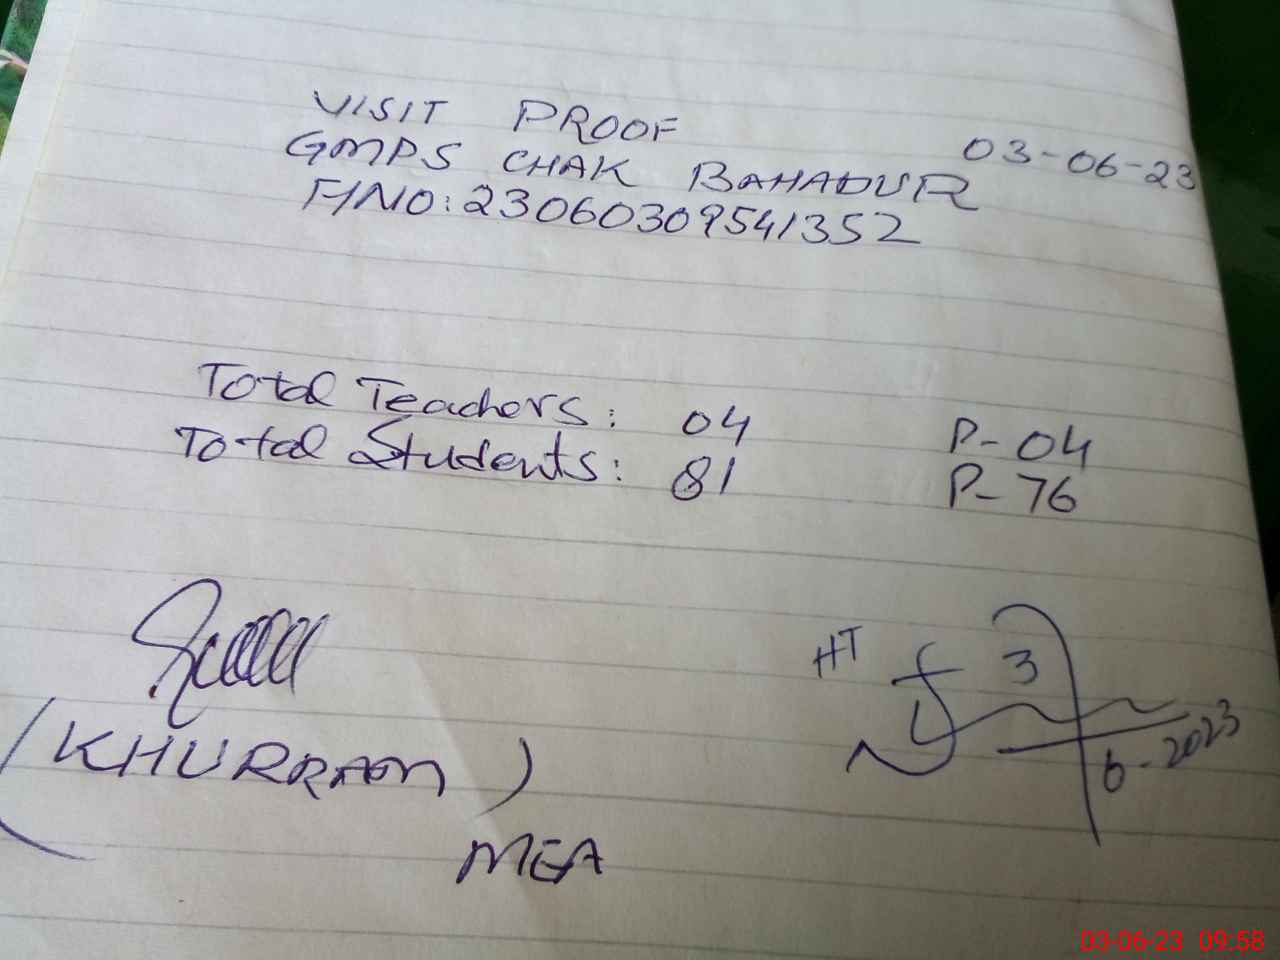 VISIT PROOF
03-06-23
GMPS CHAK BAHADUR
F/NO: 23060309541352
Total Teachers: 04 P-04
Total Students: 81 P-76
HT
3
6-2023
(KHURRAM)
MEA
03-06-23 09:58